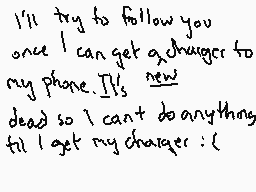 I'll try to follow you
once I can get a new charger to
my phone. It's
dead so I can't do anything
til I get my charger :(